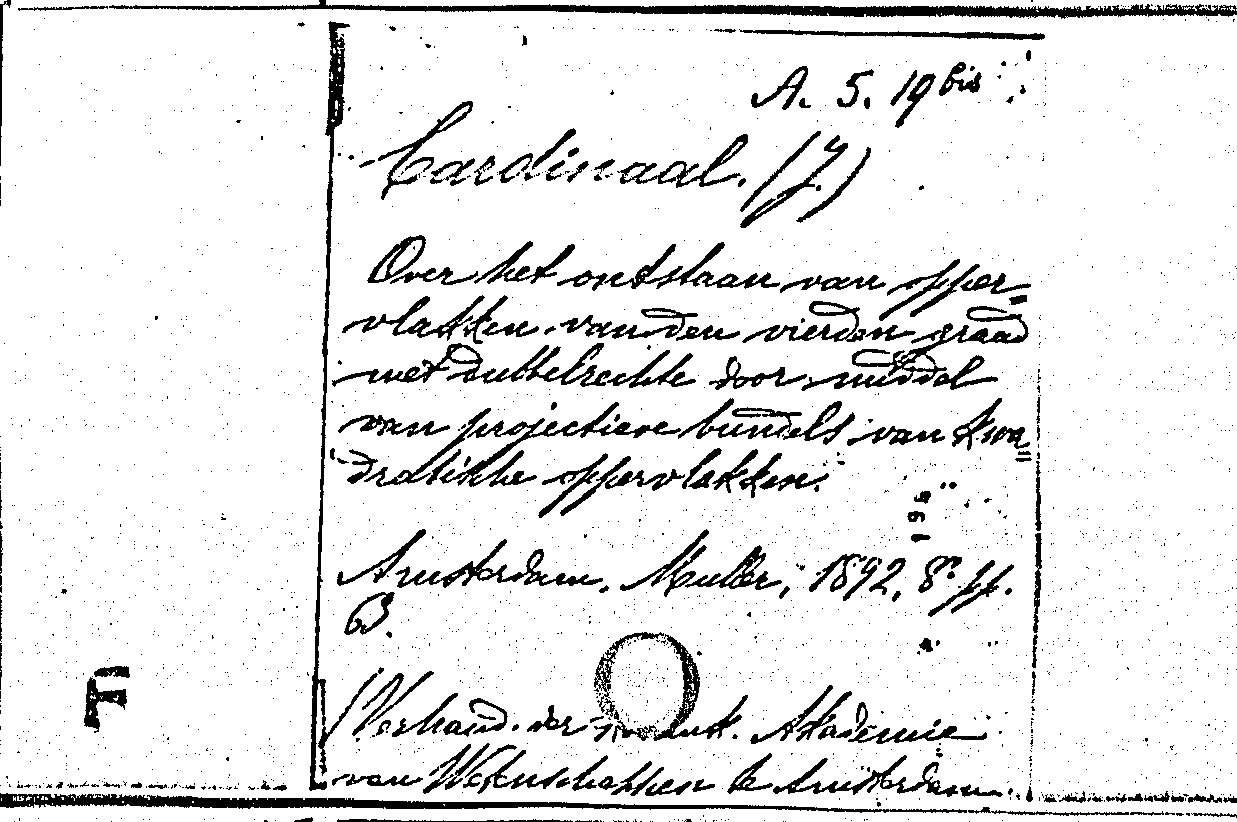 A. 5. 19 bis
Cardinaal. (J.)
Over het ontstaan van opper=
vlakken van den vierden graad
met dubbelrechte door middel
van projectieve bundels van kwa=
dratische oppervlakken.
Amsterdam, Muller, 1892, 8º pp.
63.
F
(Verhand. der Akademie
van Wetenschappen te Amsterdam.